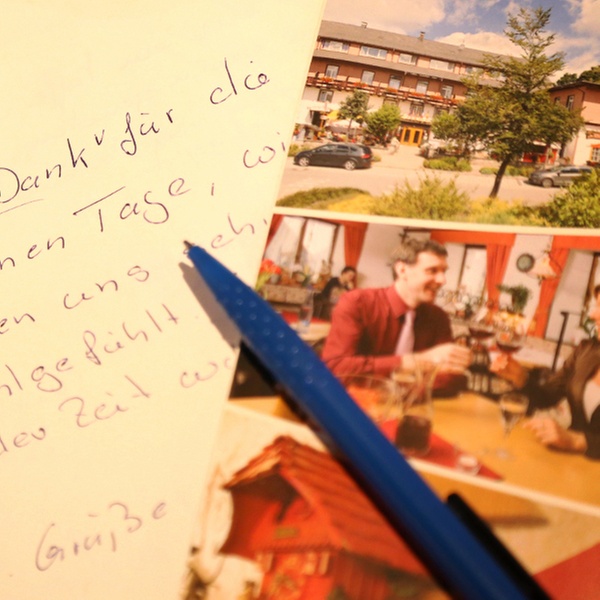 Dank" für die
nen Tage, wi
en uns eh.
hlgefühlt
der Zeit wa
Grüße